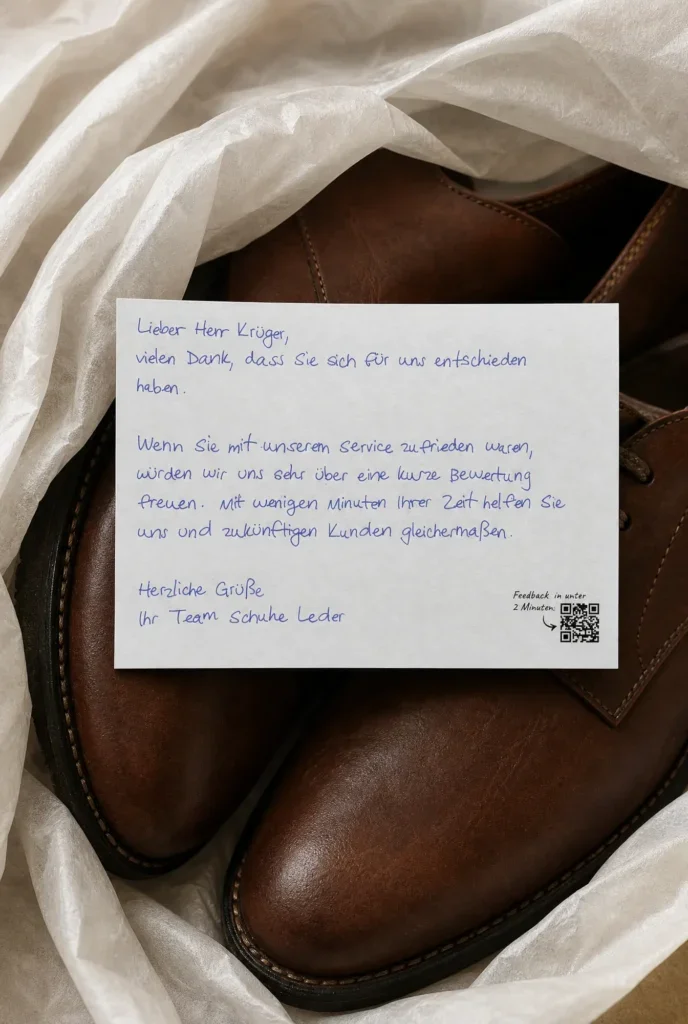 Lieber Herr Krüger,
vielen Dank, dass Sie sich für uns entschieden
haben.
Wenn Sie mit unserem Service zufrieden waren,
würden wir uns sehr über eine kurze Bewertung
freuen. Mit wenigen Minuten Ihrer Zeit helfen Sie
uns und zukünftigen Kunden gleichermaßen.
Herzliche Grüße
Ihr Team Schuhe Leder
Feedback in unter
2 Minuten: